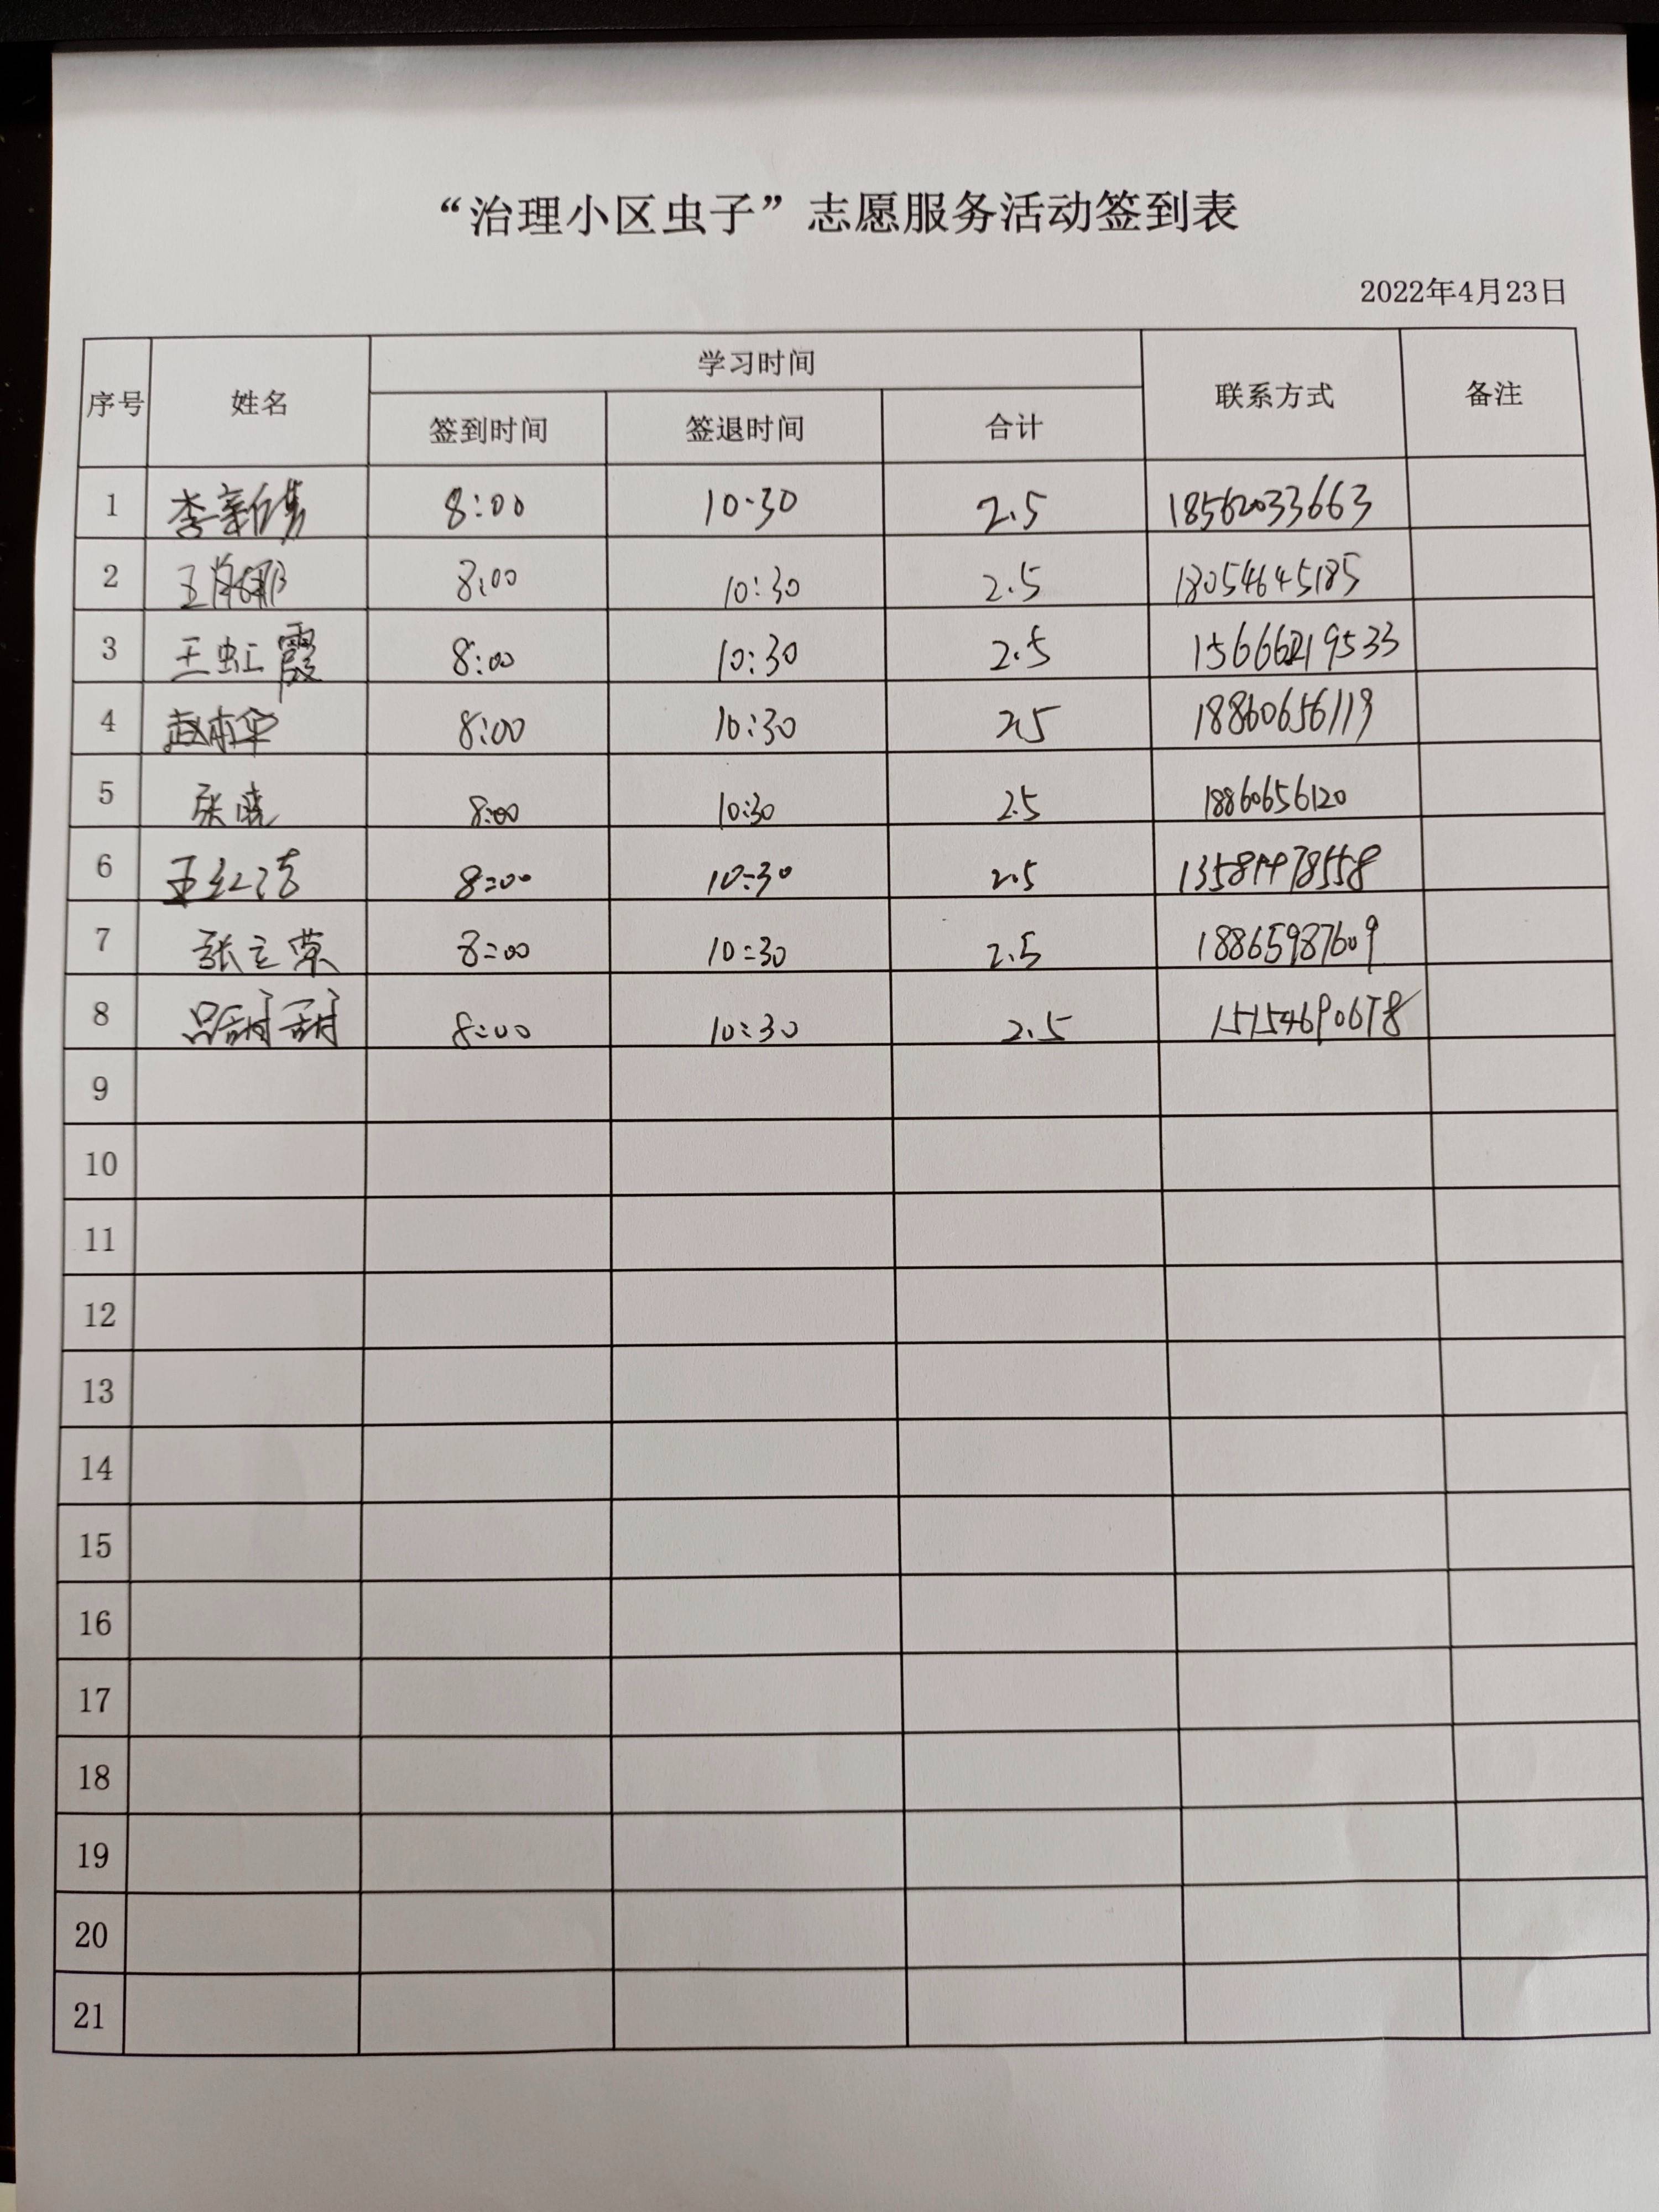 “治理小区虫子”志愿服务活动签到表
2022年4月23日
序号 姓名 学习时间 联系方式 备注
签到时间 签退时间 合计
1 李新 8:00 10:30 2.5 18562033663
2 王 娜 8:00 10:30 2.5 18054645185
3 王虹霞 8:00 10:30 2.5 15666219533
4 赵 华 8:00 10:30 2.5 18860656119
5 张晓 8:00 10:30 2.5 18860656120
6 王红洁 8:00 10:30 2.5
7 张立荣 8:00 10:30 2.5 18865987609
8 吕甜甜 8:00 10:30 2.5 15154690678
9
10
11
12
13
14
15
16
17
18
19
20
21